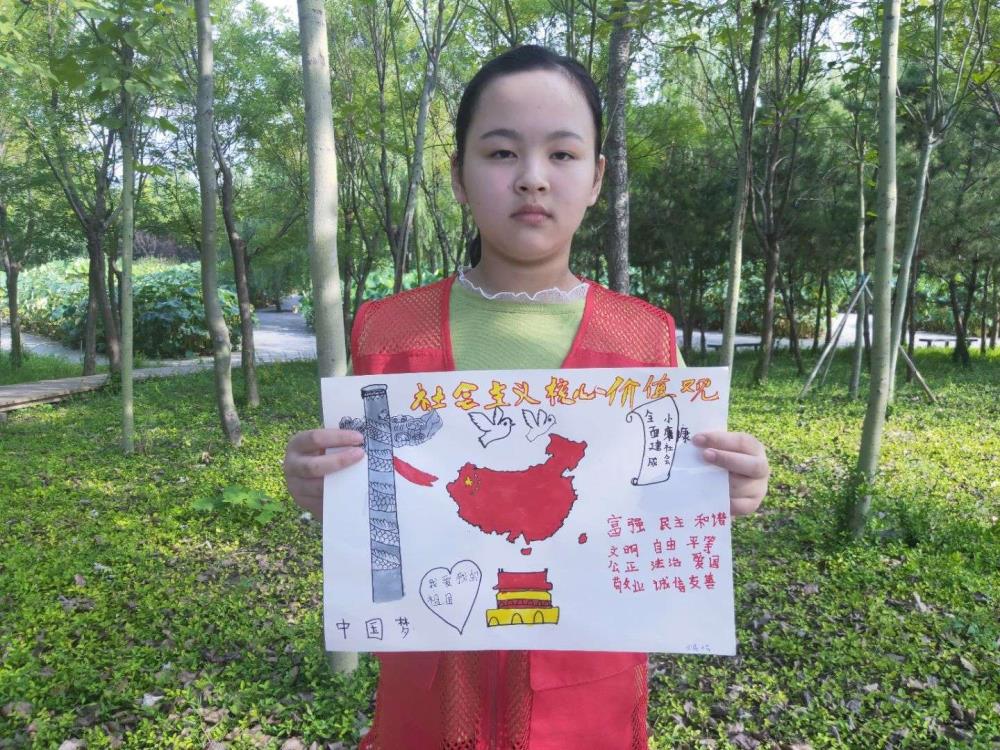 社会主义核心价值观
全面建成
小康社会
富强 民主 和谐
文明 自由 平等
公正 法治 爱国
敬业 诚信 友善
我爱我的
祖国
中国梦